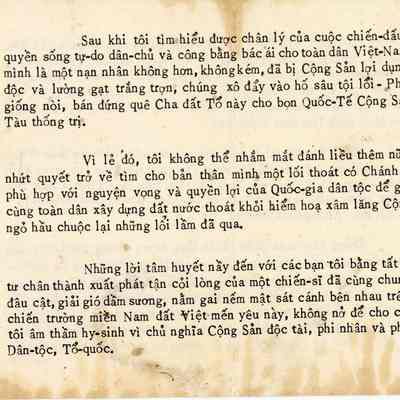 Sau khi tôi tìm hiểu được chân lý của cuộc chiến-đấu
quyền sống tự-do dân-chủ và công bằng bác ái cho toàn dân Việt-Na
mình là một nạn nhân không hơn, không kém, đã bị Cộng Sản lợi dụn
độc và lường gạt trắng trợn, chúng xô đẩy vào hố sâu tội lỗi - Ph
giống nòi, bán đứng quê Cha đất Tổ này cho bọn Quốc-Tế Cộng Sả
Tàu thống trị.
Vì lẽ đó, tôi không thể nhắm mắt đánh liều thêm nữ
nhứt quyết trở về tìm cho bản thân mình một lối thoát có Chánh
phù hợp với nguyện vọng và quyền lợi của Quốc-gia dân tộc để g
cùng toàn dân xây dựng đất nước thoát khỏi hiểm hoạ xâm lăng Cộ
ngỏ hầu chuộc lại những lổi lầm đã qua.
Những lời tâm huyết nầy đến với các bạn tôi bằng tất
tư chân thành xuất phát tận cỏi lòng của một chiến-sĩ đã cùng chun
đâu cật, giải gió dầm sương, nằm gai nếm mật sát cánh bên nhau trê
chiến trường miền Nam đất Việt mến yêu này, không nở để cho c
tôi âm thầm hy-sinh vì chủ nghĩa Cộng Sản độc tài, phi nhân và ph
Dân-tộc, Tổ-quốc.